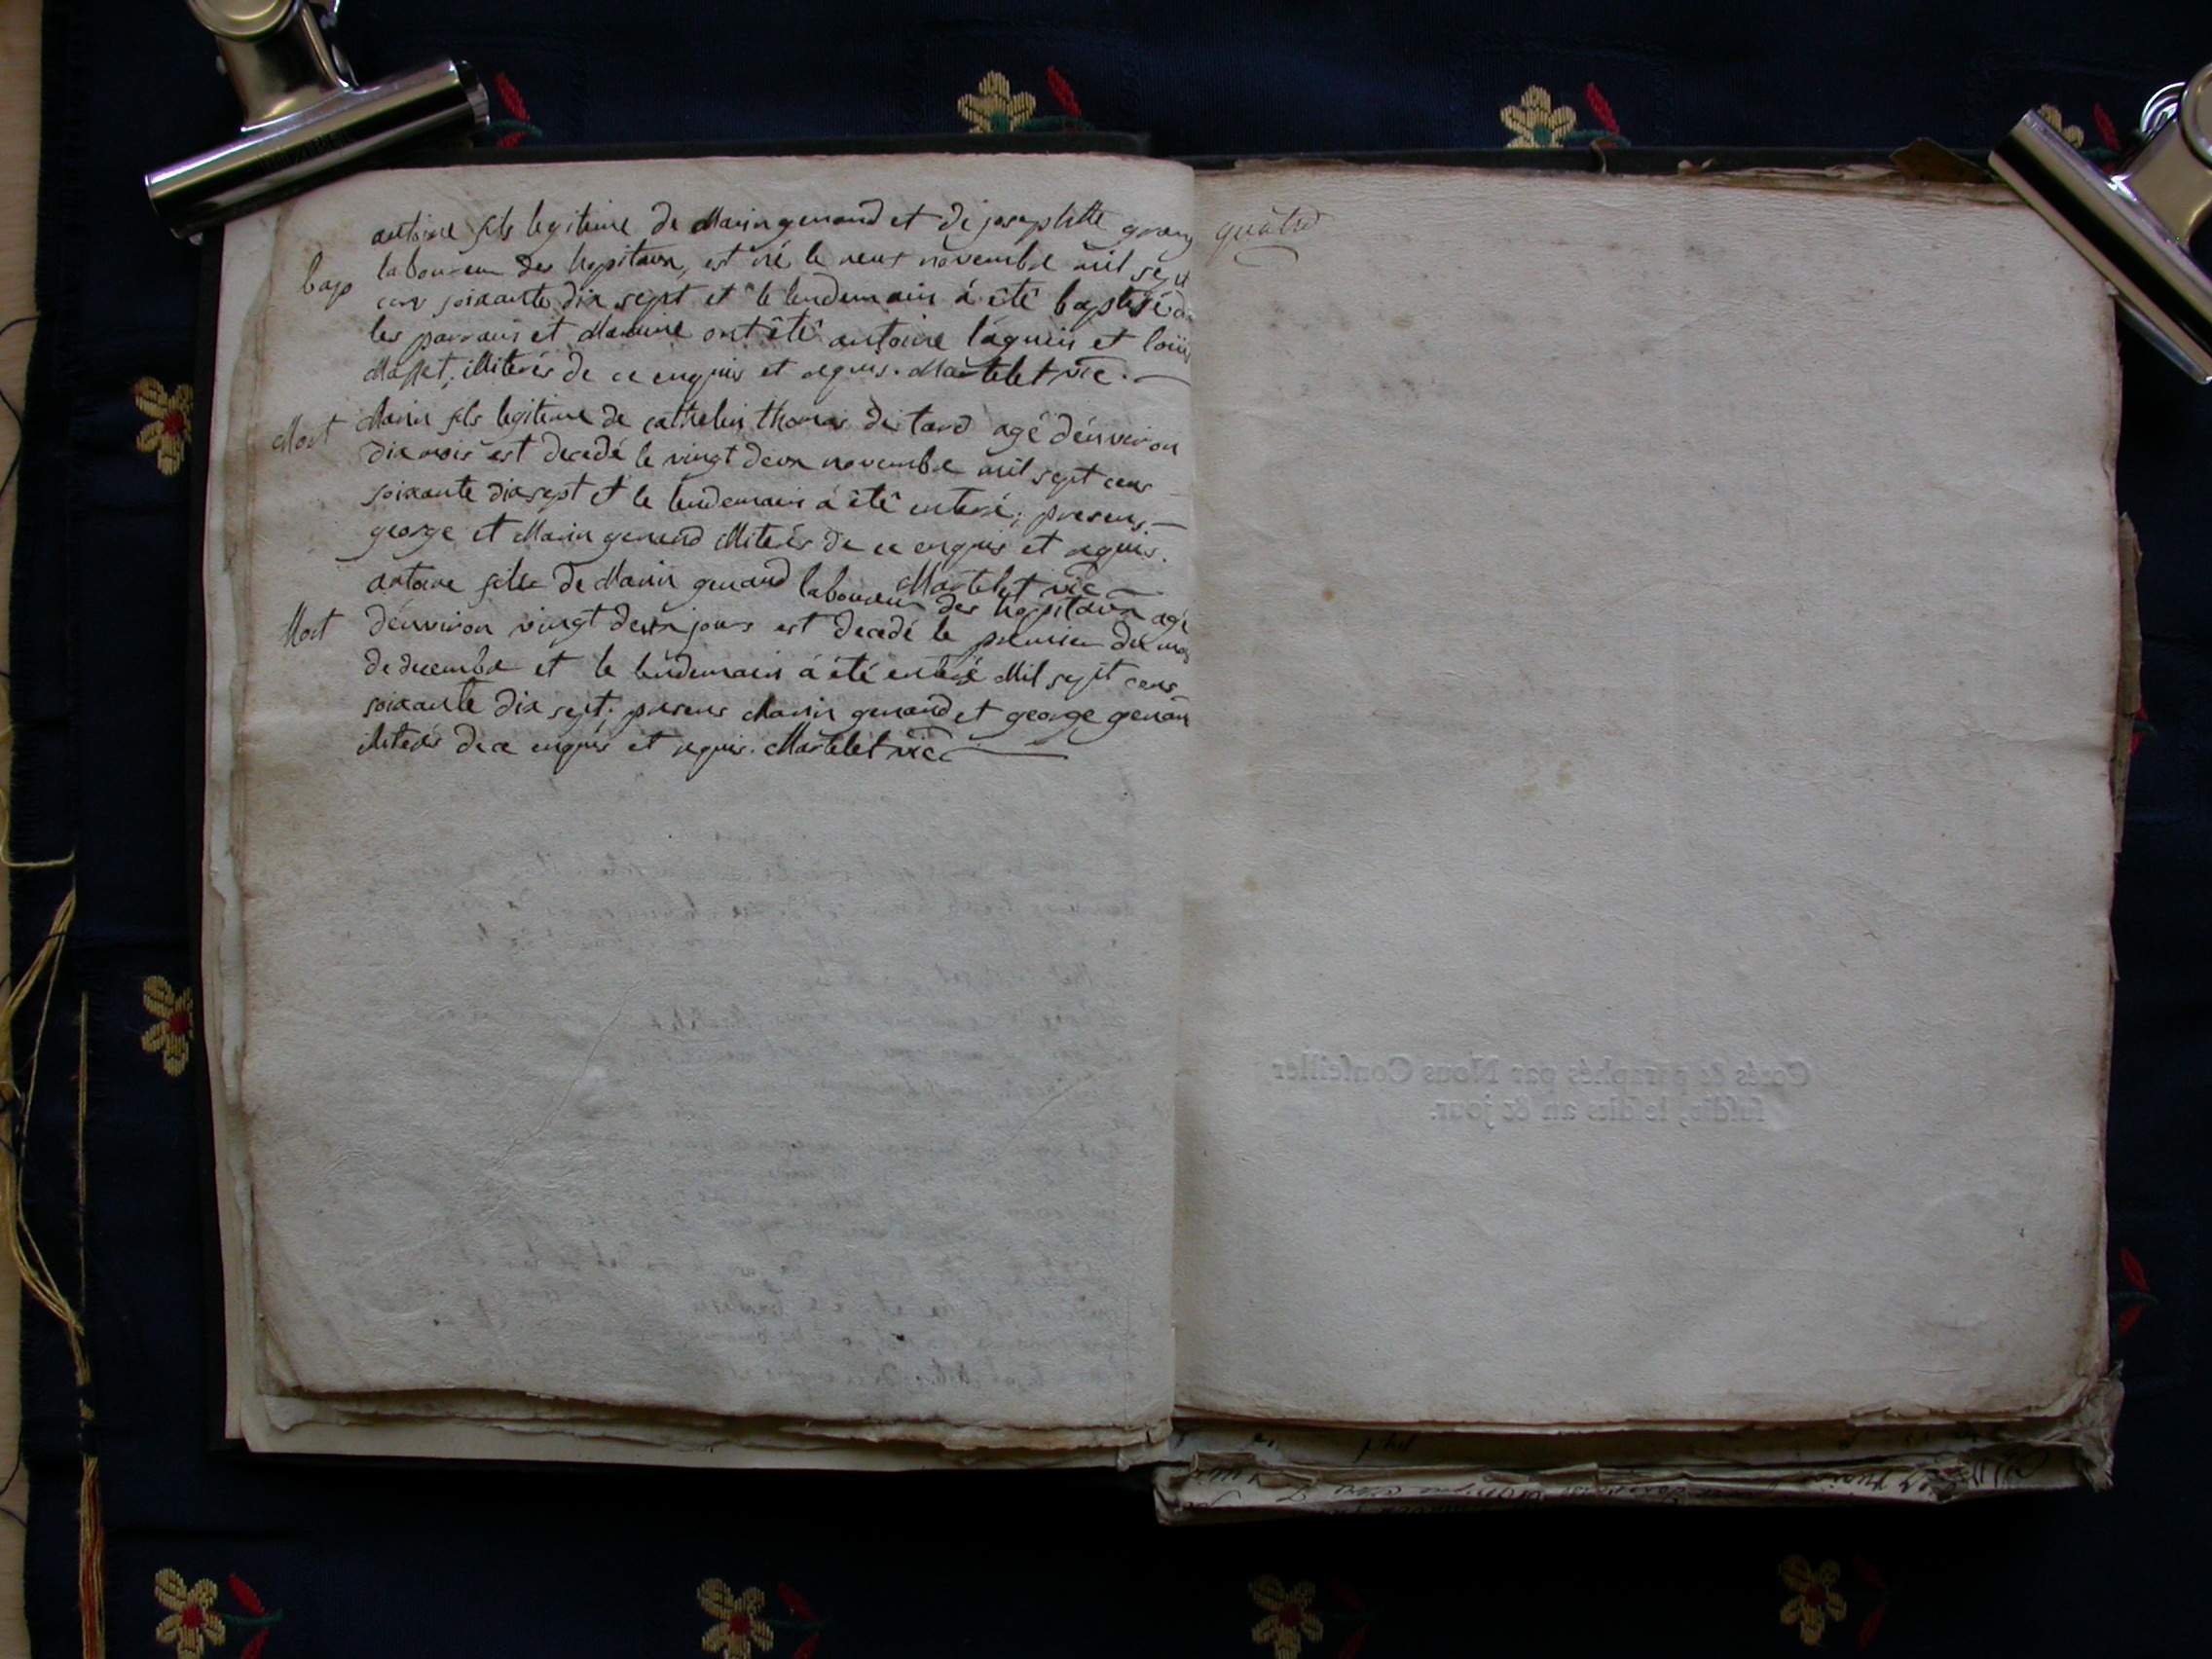 antoine fils legitime de Marin genaud et de josephtte
bap laboureur des hopitaux, est né le neuf novembre mil sept
cens soixante dix sept et le lendemain à été baptisé
les parrain et Maraine ont été antoine laguin et
Masset, illiterés de ce enquis et requis. Martelet vic.
Mort Marin fils legitime de cathelin thomas de tard agé dénviron
dix mois est decedé le vingt deux novembre mil sept cens
soixante dix sept et le lendemain à été enteré; presens
george et Marin genaud illiterés de ce enquis et requis.
Martelet vic
antoine fils de Marin genaud laboureur des hopitaux agé
Mort dénviron vingt deux jours est decedé le premier du mois
de decembre et le lendemain à été enteré Mil sept cens
soixante dix sept; presens Marin genaud et george genau
iliterés de ce enquis et requis. Martelet vic
quatre
Cotés & paraphés par Nous Conseiller
susdit, lesdits an & jour.